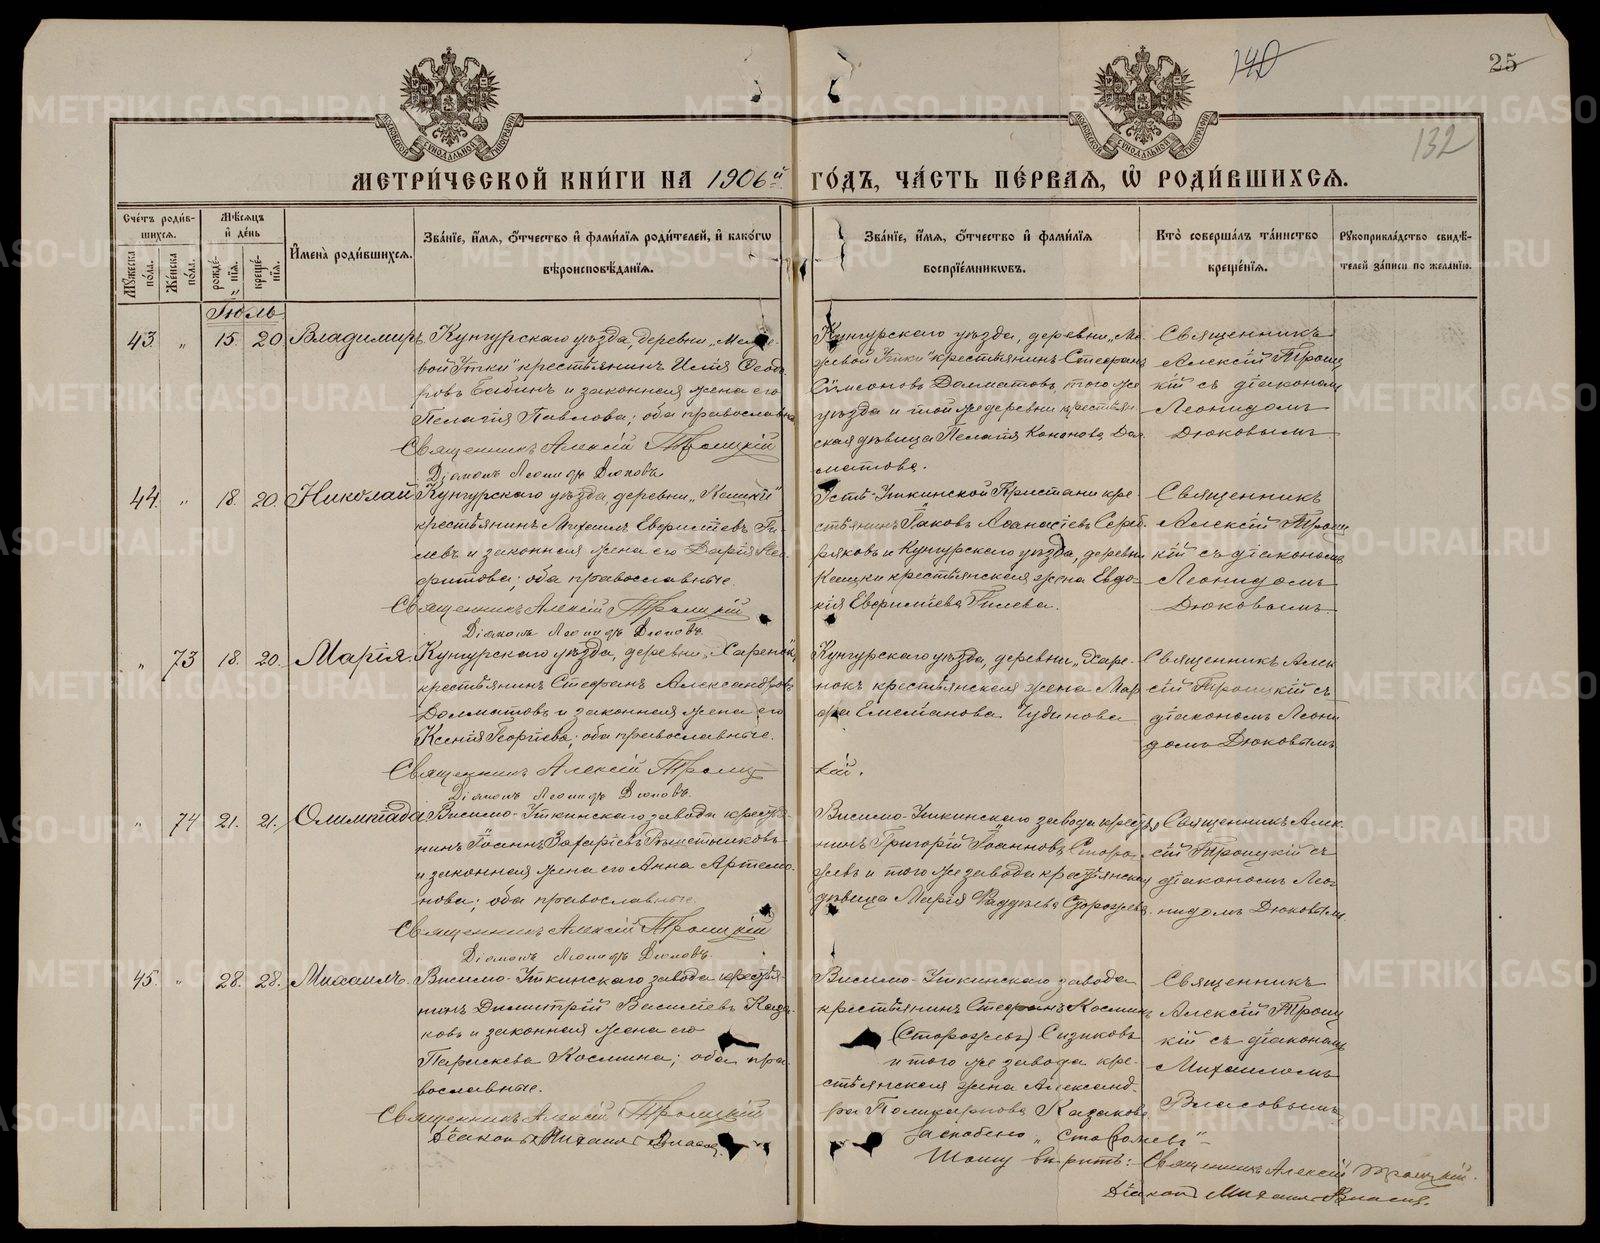 140
25
132
МЕТРИ́ЧЕСКОЙ КНИ́ГИ НА 1906й ГО́ДЪ, ЧА́СТЬ ПЕ́РВАЯ, Ѡ РОДИ́ВШИХСЯ.
Сче́тъ роди́в-
шихся.
Му́жеска по́ла.
Же́нска по́ла.
Мѣ́сяцъ
и де́нь
рожде́-
нїя.
креще́-
нїя.
Имена̀ роди́вшихся.
Зва́нїе, и́мя, ѻ́тчество и фами́лїя роди́телей, и како́гѡ
вѣроисповѣ́данїя.
Зва́нїе, и́мя, ѻ́тчество и фами́лїя
воспрїе́мникѡвъ.
Кто̀ соверша́лъ та́инство
креще́нїя.
Рꙋкоприкла́дство свидѣ́-
телей за́писи по жела́нїю.
Іюль
43. " 15. 20 Владимиръ
Кунгурскаго уѣзда, деревни „Меже-
вой Утки" крестьянинъ Илія Ѳеодо-
ровъ Бабинъ и законная жена его
Пелагія Павлова; оба православна
Священникъ Алексій Троицкій
Діаконъ Леонидъ Дюковъ.
Кунгурскаго уѣзда, деревни „Ме-
жевой Утки" крестьянинъ Стефанъ
Сѵмеоновъ Далматовъ, того же
уѣзда и той же деревни крестьян-
ская дѣвица Пелагія Кононова Дал-
матова.
Священникъ
Алексій Троиц
кій съ діакономъ
Леонидомъ
Дюковымъ
44. " 18. 20. Николай
Кунгурскаго уѣзда, деревни „Кашки"
крестьянинъ Михаилъ Евфиміевъ Ги-
левъ и законная жена его Дарія
; оба православные.
Священникъ Алексій Троицкій
Діаконъ Леонидъ Дюковъ.
Усть-Уткинской Пристани кре-
стьянинъ Іаковъ Аѳанасіевъ Сереб-
ряковъ и Кунгурскаго уѣзда, деревни
Кашки крестьянская жена Евдо-
кія Евфиміева Гилева.
Священникъ
Алексій Троиц
кій съ діакономъ
Леонидомъ
Дюковымъ
" 73 18. 20. Марія.
Кунгурскаго уѣзда, деревни „Харенокъ"
крестьянинъ Стефанъ Александровъ
Долматовъ и законная жена его
Ксенія Георгіева; оба православные.
Священникъ Алексій Троиц
Діаконъ Леонидъ Дюковъ.
Кунгурскаго уѣзда, деревни „Харе-
нокъ крестьянская жена Мар
ѳа Емеліанова Чудинова
кій.
Священникъ Алек
сій Троицкій съ
діакономъ Леони
домъ Дюковымъ
" 74 21. 21. Олимпіада
Висимо-Уткинскаго завода крестья-
нинъ Іоаннъ Захаріевъ
и законная жена его Анна Артемо-
нова; оба православные.
Священникъ Алексій Троицкій
Діаконъ Леонидъ Дюковъ.
Висимо-Уткинскаго завода крестья
нинъ Григорій Іоанновъ Сторо-
жевъ и того же завода крестьянская
дѣвица Марія Ѳаддѣева Сторожева.
Священникъ Алек-
сій Троицкій съ
діакономъ Лео-
нидомъ Дюковымъ
45. " 28. 28. Михаилъ.
Висимо-Уткинскаго завода крестья-
нинъ Димитрій Василіевъ Каза-
ковъ и законная жена его
Параскева Космина; оба пра-
вославные.
Священникъ Алексій Троицкій
Діаконъ Михаилъ Власовъ
Висимо-Уткинскаго завода
крестьянинъ Стефанъ Косминъ
(Сторожевъ) Сизиковъ
и того же завода кре-
стьянская жена Александ-
ра Поликарпова Казакова
Заскоблено „Сторожевъ"
Тому вѣрить: Священникъ Алексій Троицкій.
Діаконъ Михаилъ Власовъ.
Священникъ
Алексій Троиц
кій съ діакономъ
Михаиломъ
Власовымъ
METRIKI.GASO-URAL.RU